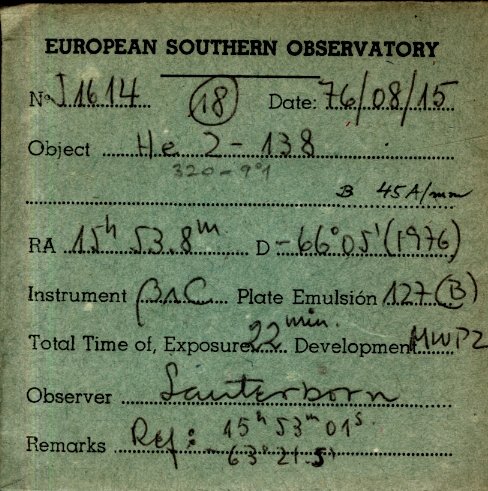 EUROPEAN SOUTHERN OBSERVATORY
Nº I1614 (18) Date: 76/08/15
Object He 2-138
320-9°1
B 45A/mm
RA 15h 53.8m D -66°05'(1976)
Instrument Plate Emulsión 127(B)
Total Time of, Exposure 22 min. Development MWP2
Observer Sauterborn
Remarks Ref: 15h 53m 01s
-63°21.5'